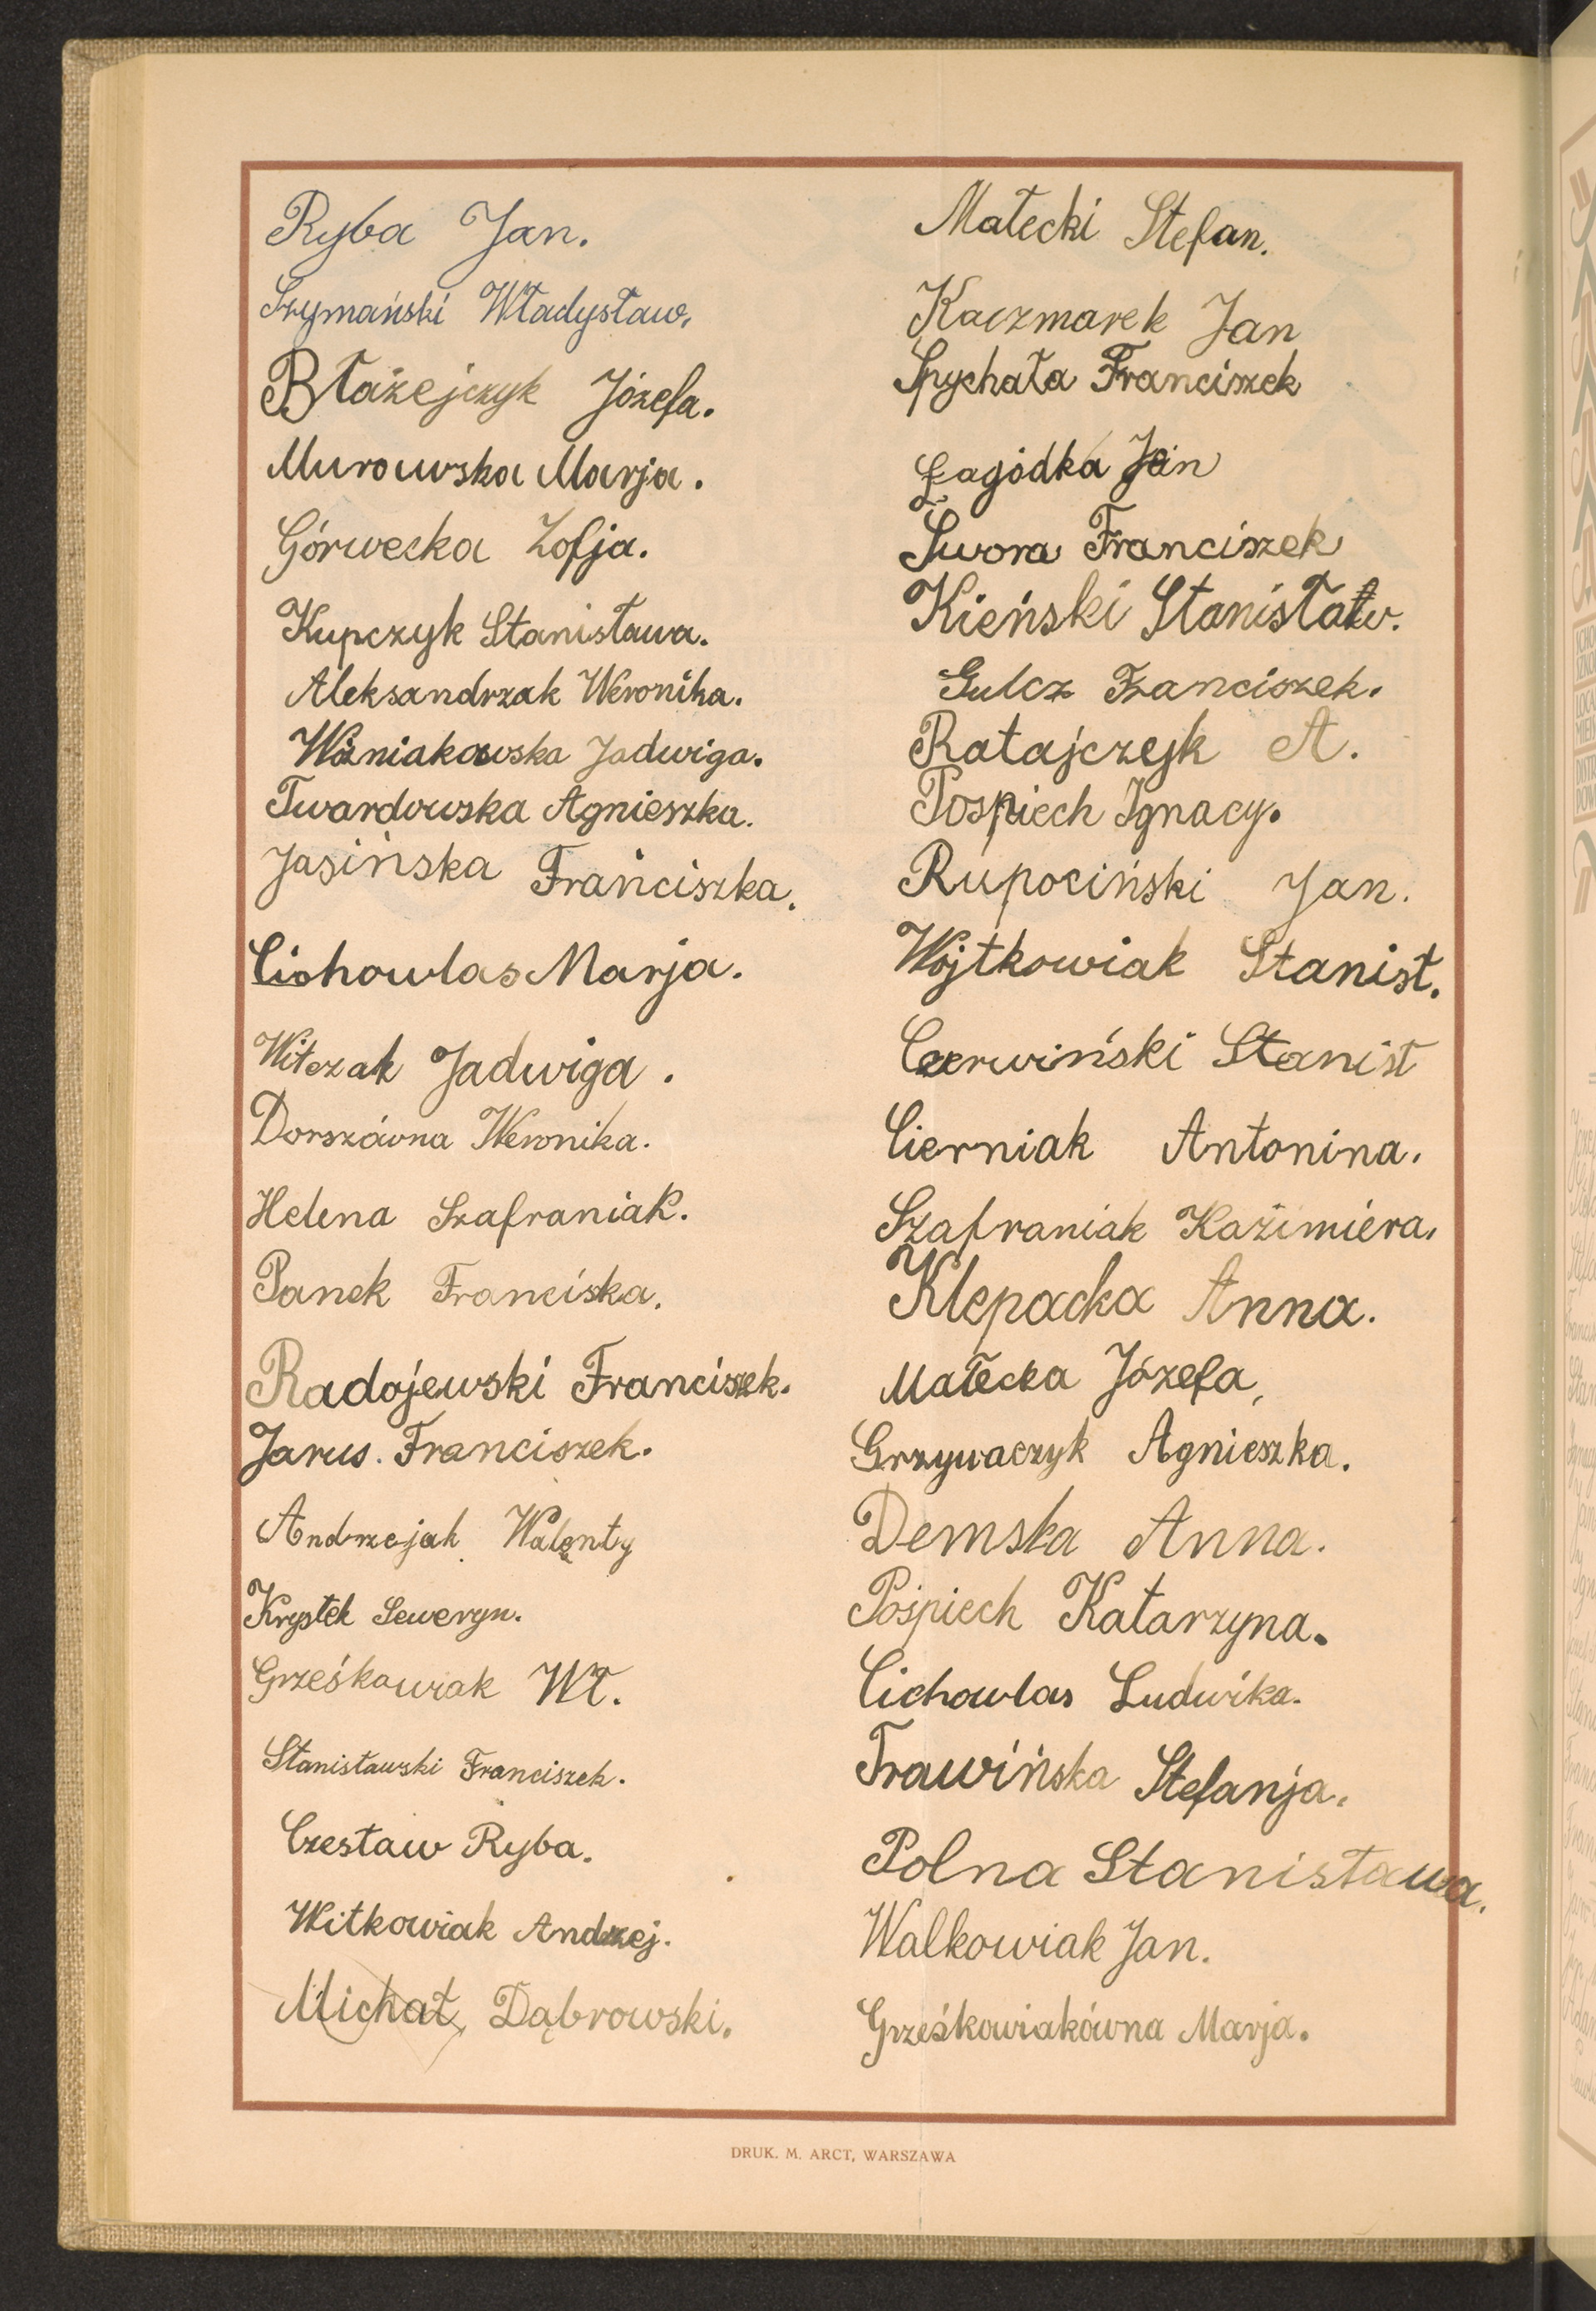 Ryba Jan.
Szymański Władysław,
Błażejczyk Józefa.
Murowska Marja.
Górwecka Zofja.
Kupczyk Stanisława.
Aleksandrzak Weronika.
Woźniakowska Jadwiga.
Twardowska Agnieszka.
Jasińska Franciszka.
Cichowlas Marja.
Witczak Jadwiga.
Dorszówna Weronika.
Helena Szafraniak.
Panek Franciska.
Radojewski Franciszek.
Jarus. Franciszek.
Andrzejak Walenty
Krystek Seweryn.
Grześkowiak Wł.
Stanisławski Franciszek.
Czesław Ryba.
Witkowiak Andrzej.
Michał Dąbrowski.
Małecki Stefan.
Kaczmarek Jan
Spychała Franciszek
Łagódka Jan
Swora Franciszek
Kieński Stanisław.
Gulcz Franciszek.
Ratajczyk A.
Pospiech Ignacy.
Rupociński Jan.
Wojtkowiak Stanisł.
Czerwiński Stanisł
Cierniak Antonina.
Szafraniak Kaźimiera.
Klepacka Anna.
Małecka Józefa,
Grzywaczyk Agnieszka.
Demska Anna.
Pośpiech Katarzyna.
Cichowlas Ludwika.
Trawińska Stefanja.
Polna Stanisława.
Walkowiak Jan.
Grześkowiakówna Marja.
DRUK. M. ARCT, WARSZAWA